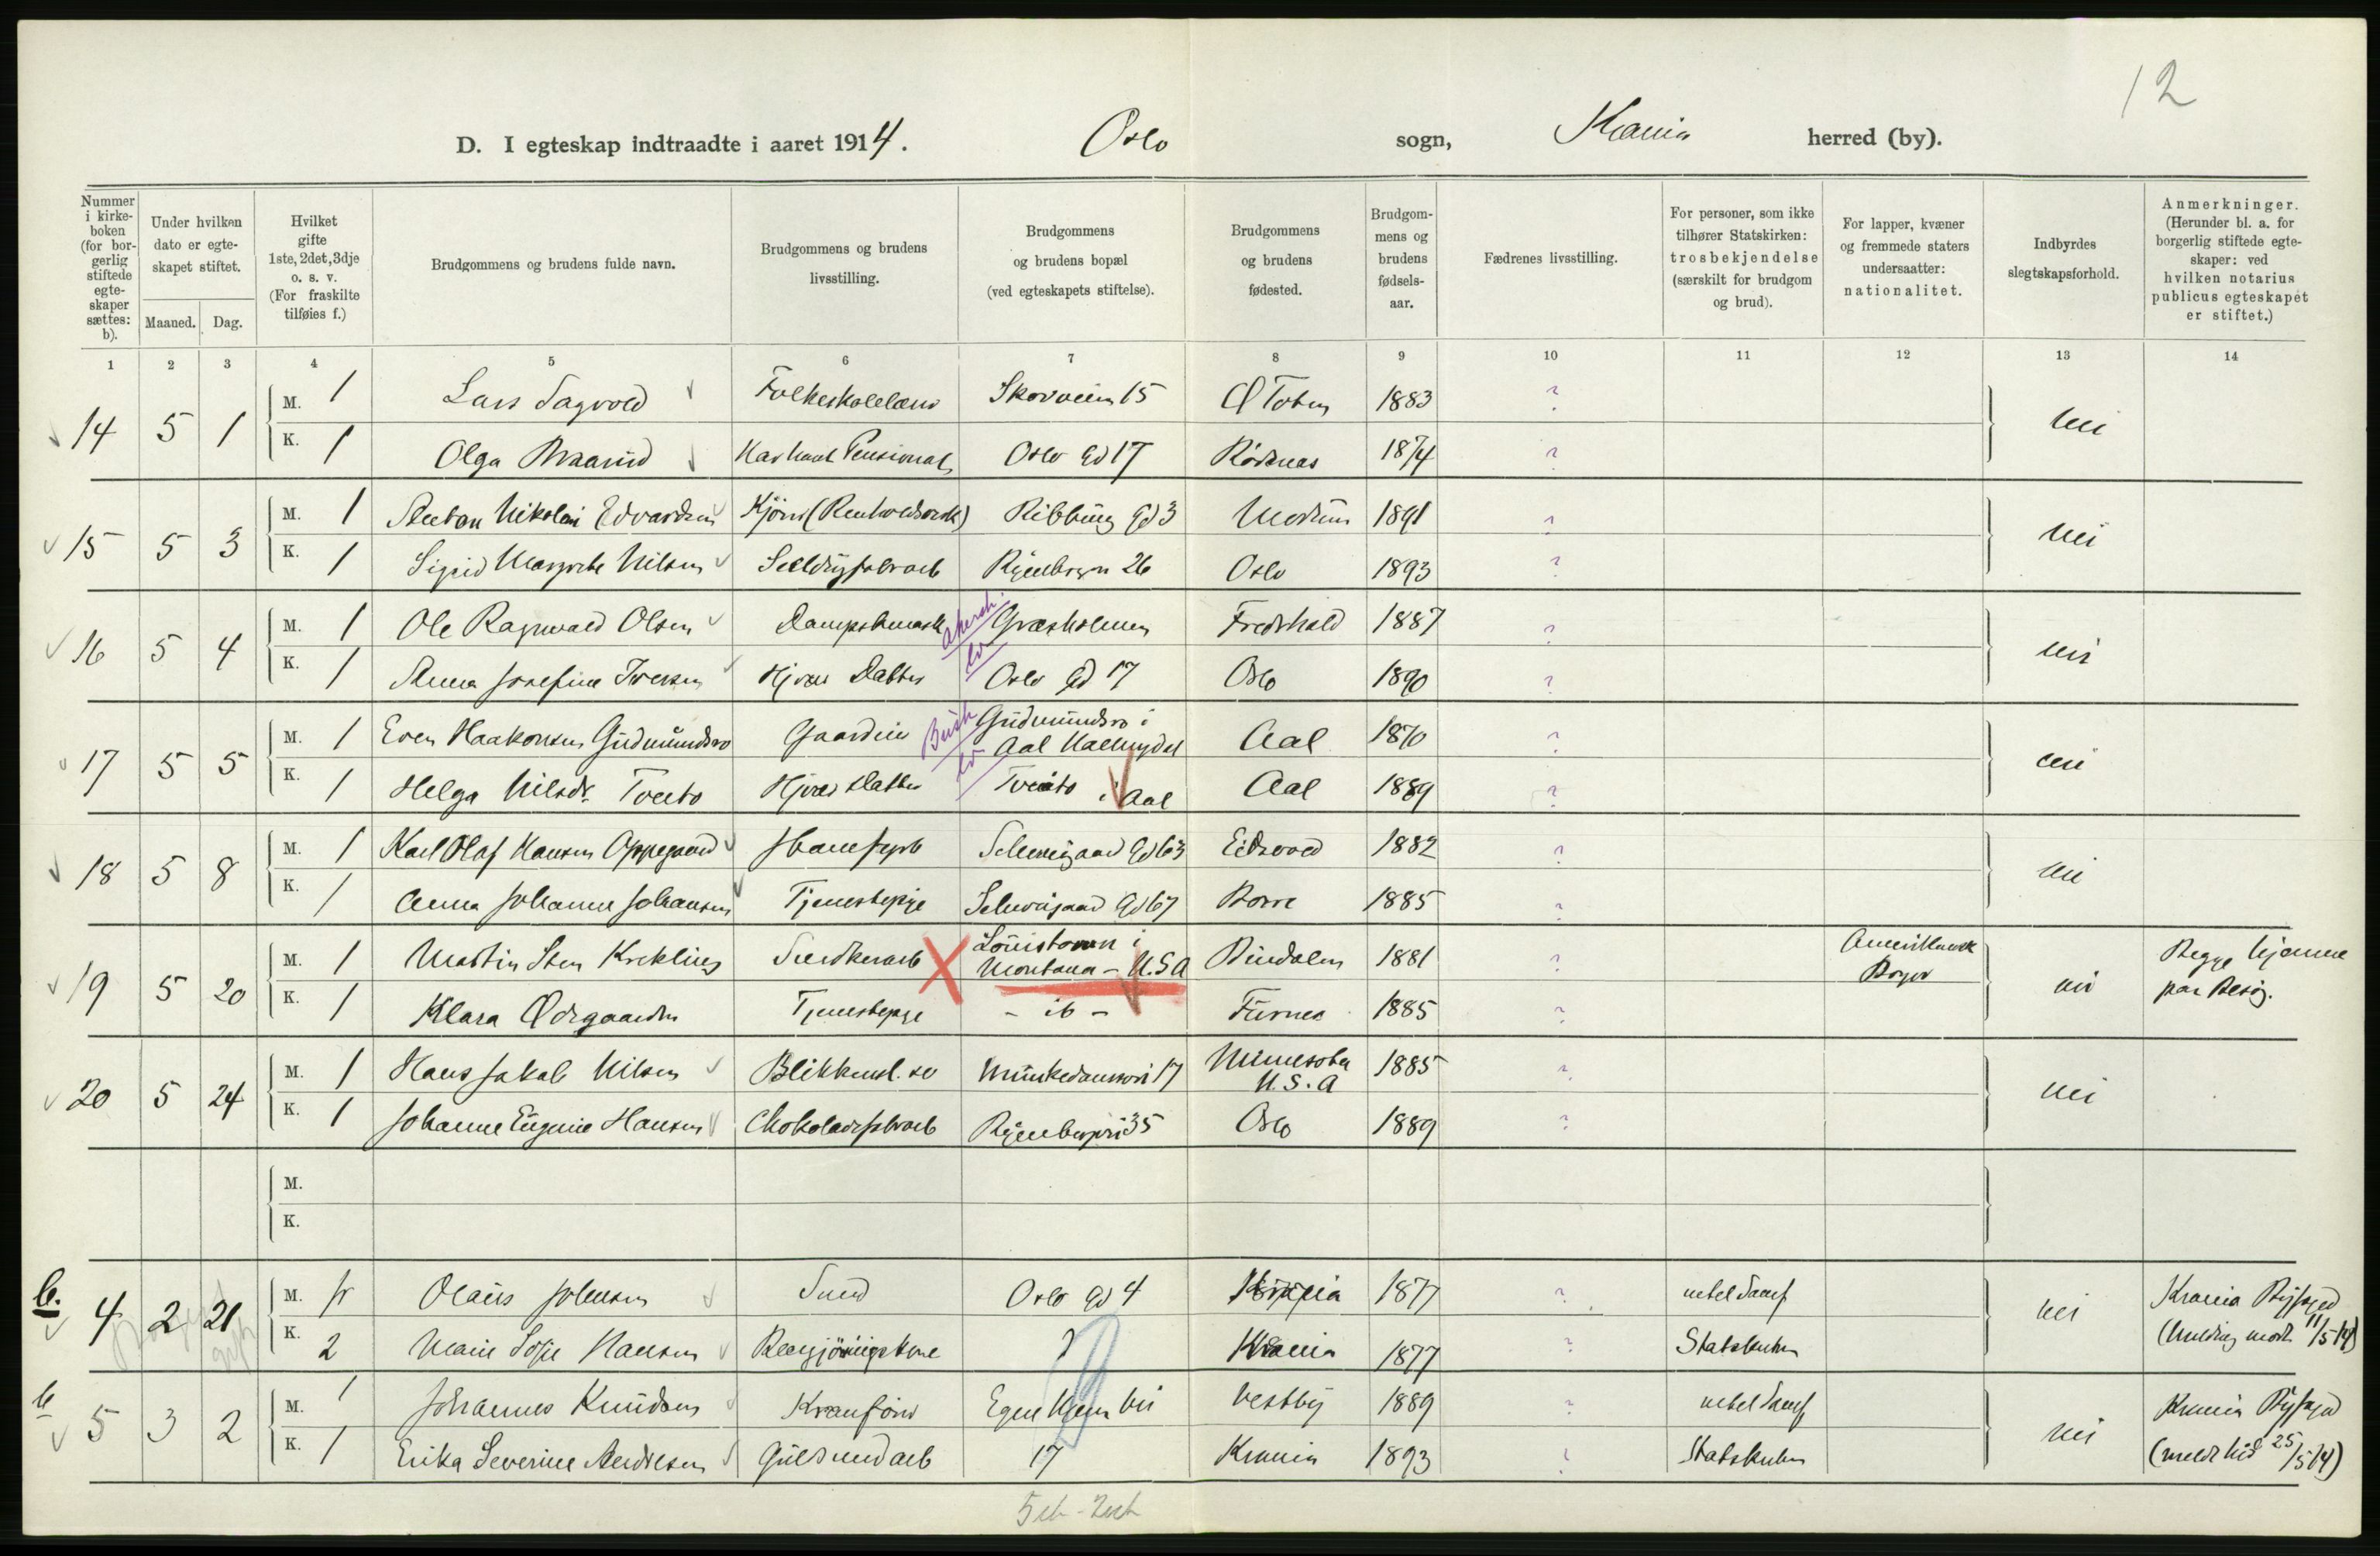 12
D. I egteskap indtraadte i aaret 1914. Oslo sogn, Krania herred (by).
Nummer i kirkeboken (for borgerlig stiftede egteskaper sættes: b).
Under hvilken dato er egteskapet stiftet.
Maaned. Dag.
Hvilket gifte 1ste, 2det, 3dje o. s. v. (For fraskilte tilføies f.)
Brudgommens og brudens fulde navn.
Brudgommens og brudens livsstilling.
Brudgommens og brudens bopæl (ved egteskapets stiftelse).
Brudgommens og brudens fødested.
Brudgommens og brudens fødselsaar.
Fædrenes livsstilling.
For personer, som ikke tilhører Statskirken: trosbekjendelse (særskilt for brudgom og brud).
For lapper, kvæner og fremmede staters undersaatter: nationalitet.
Indbyrdes slegtskapsforhold.
Anmerkninger. (Herunder bl. a. for borgerlig stiftede egteskaper: ved hvilken notarius publicus egteskapet er stiftet.)
1 2 3 4 5 6 7 8 9 10 11 12 13 14
14 5 1 M. 1 Lars Sagvold Folkeskolelærer 15 Ø Toten 1883 ? nei
K. 1 Olga Braarud Pensionat Oslo Gd 17 Rødenes 1874 ?
15 5 3 M. 1 Anton Nikolai Edvardsen Kjører (Renholdsverk) Ribbung Gd 3 Modum 1891 ? nei
K. 1 Sigrid Margrete Nilsen Ryenbergv 26 Oslo 1893 ?
16 5 4 M. 1 Ole Ragnvald Olsen Akersh. Græsholmen Fredrhald 1887 ? nei
K. 1 Anna Josefine Iversen Hjvær Datter Oslo Gd 17 Oslo 1890 ?
17 5 5 M. 1 Even Haakonsen Gudmundsro Gaardeier Busk Gudmundsro i
Aal Hallingdal Aal 1870 ? nei
K. 1 Helga Nilsdr. Tveito Hjvær Datter Tveito i Aal Aal 1889 ?
18 5 8 M. 1 Karl Olaf Hansen Oppegaard Schweigaard Gd 63 Eidsvold 1882 ? nei
K. 1 Anna Johanne Johansen Tjenestepige Schweigaard Gd 67 Borre 1885 ?
19 5 20 M. 1 Martin Sten Kreklling Snedkerarb Louistown i
Montana – U.S.A Bindalen 1881 ? Amerikansk
Borger nei Begge hjemme
paa Besøg.
K. 1 Klara Ødegaarden Tjenestepige – ib – Furnes 1885 ?
20 5 24 M. 1 Hans Jakob Nilsen Blikkensl. sv Munkedamsvei 17 Minnesota
U.S.A 1885 ? nei
K. 1 Johanne Eugenie Hansen Chokoladefabrarb Ryenbergvei 35 Oslo 1889 ?
M.
K.
b. 4 2 21 M. fr Olaus Johnsen Smed Oslo Gd 4 Krania 1877 ? uden Samf nei Krania Byfoged
(Melding modt 11/5 14)
K. 2 Marie Sofie Hansen Rengjøringskone ? Krania 1877 ? Statskirken
b 5 3 2 M. 1 Johannes Knudsen Kranfører Egne Hjem vei Vestby 1889 ? uden Samf nei Krania Byfoged
(meldt hid 25/5 14)
K. 1 Erika Severine Andresen Guldsmedarb 17 Krania 1893 ? Statskirken